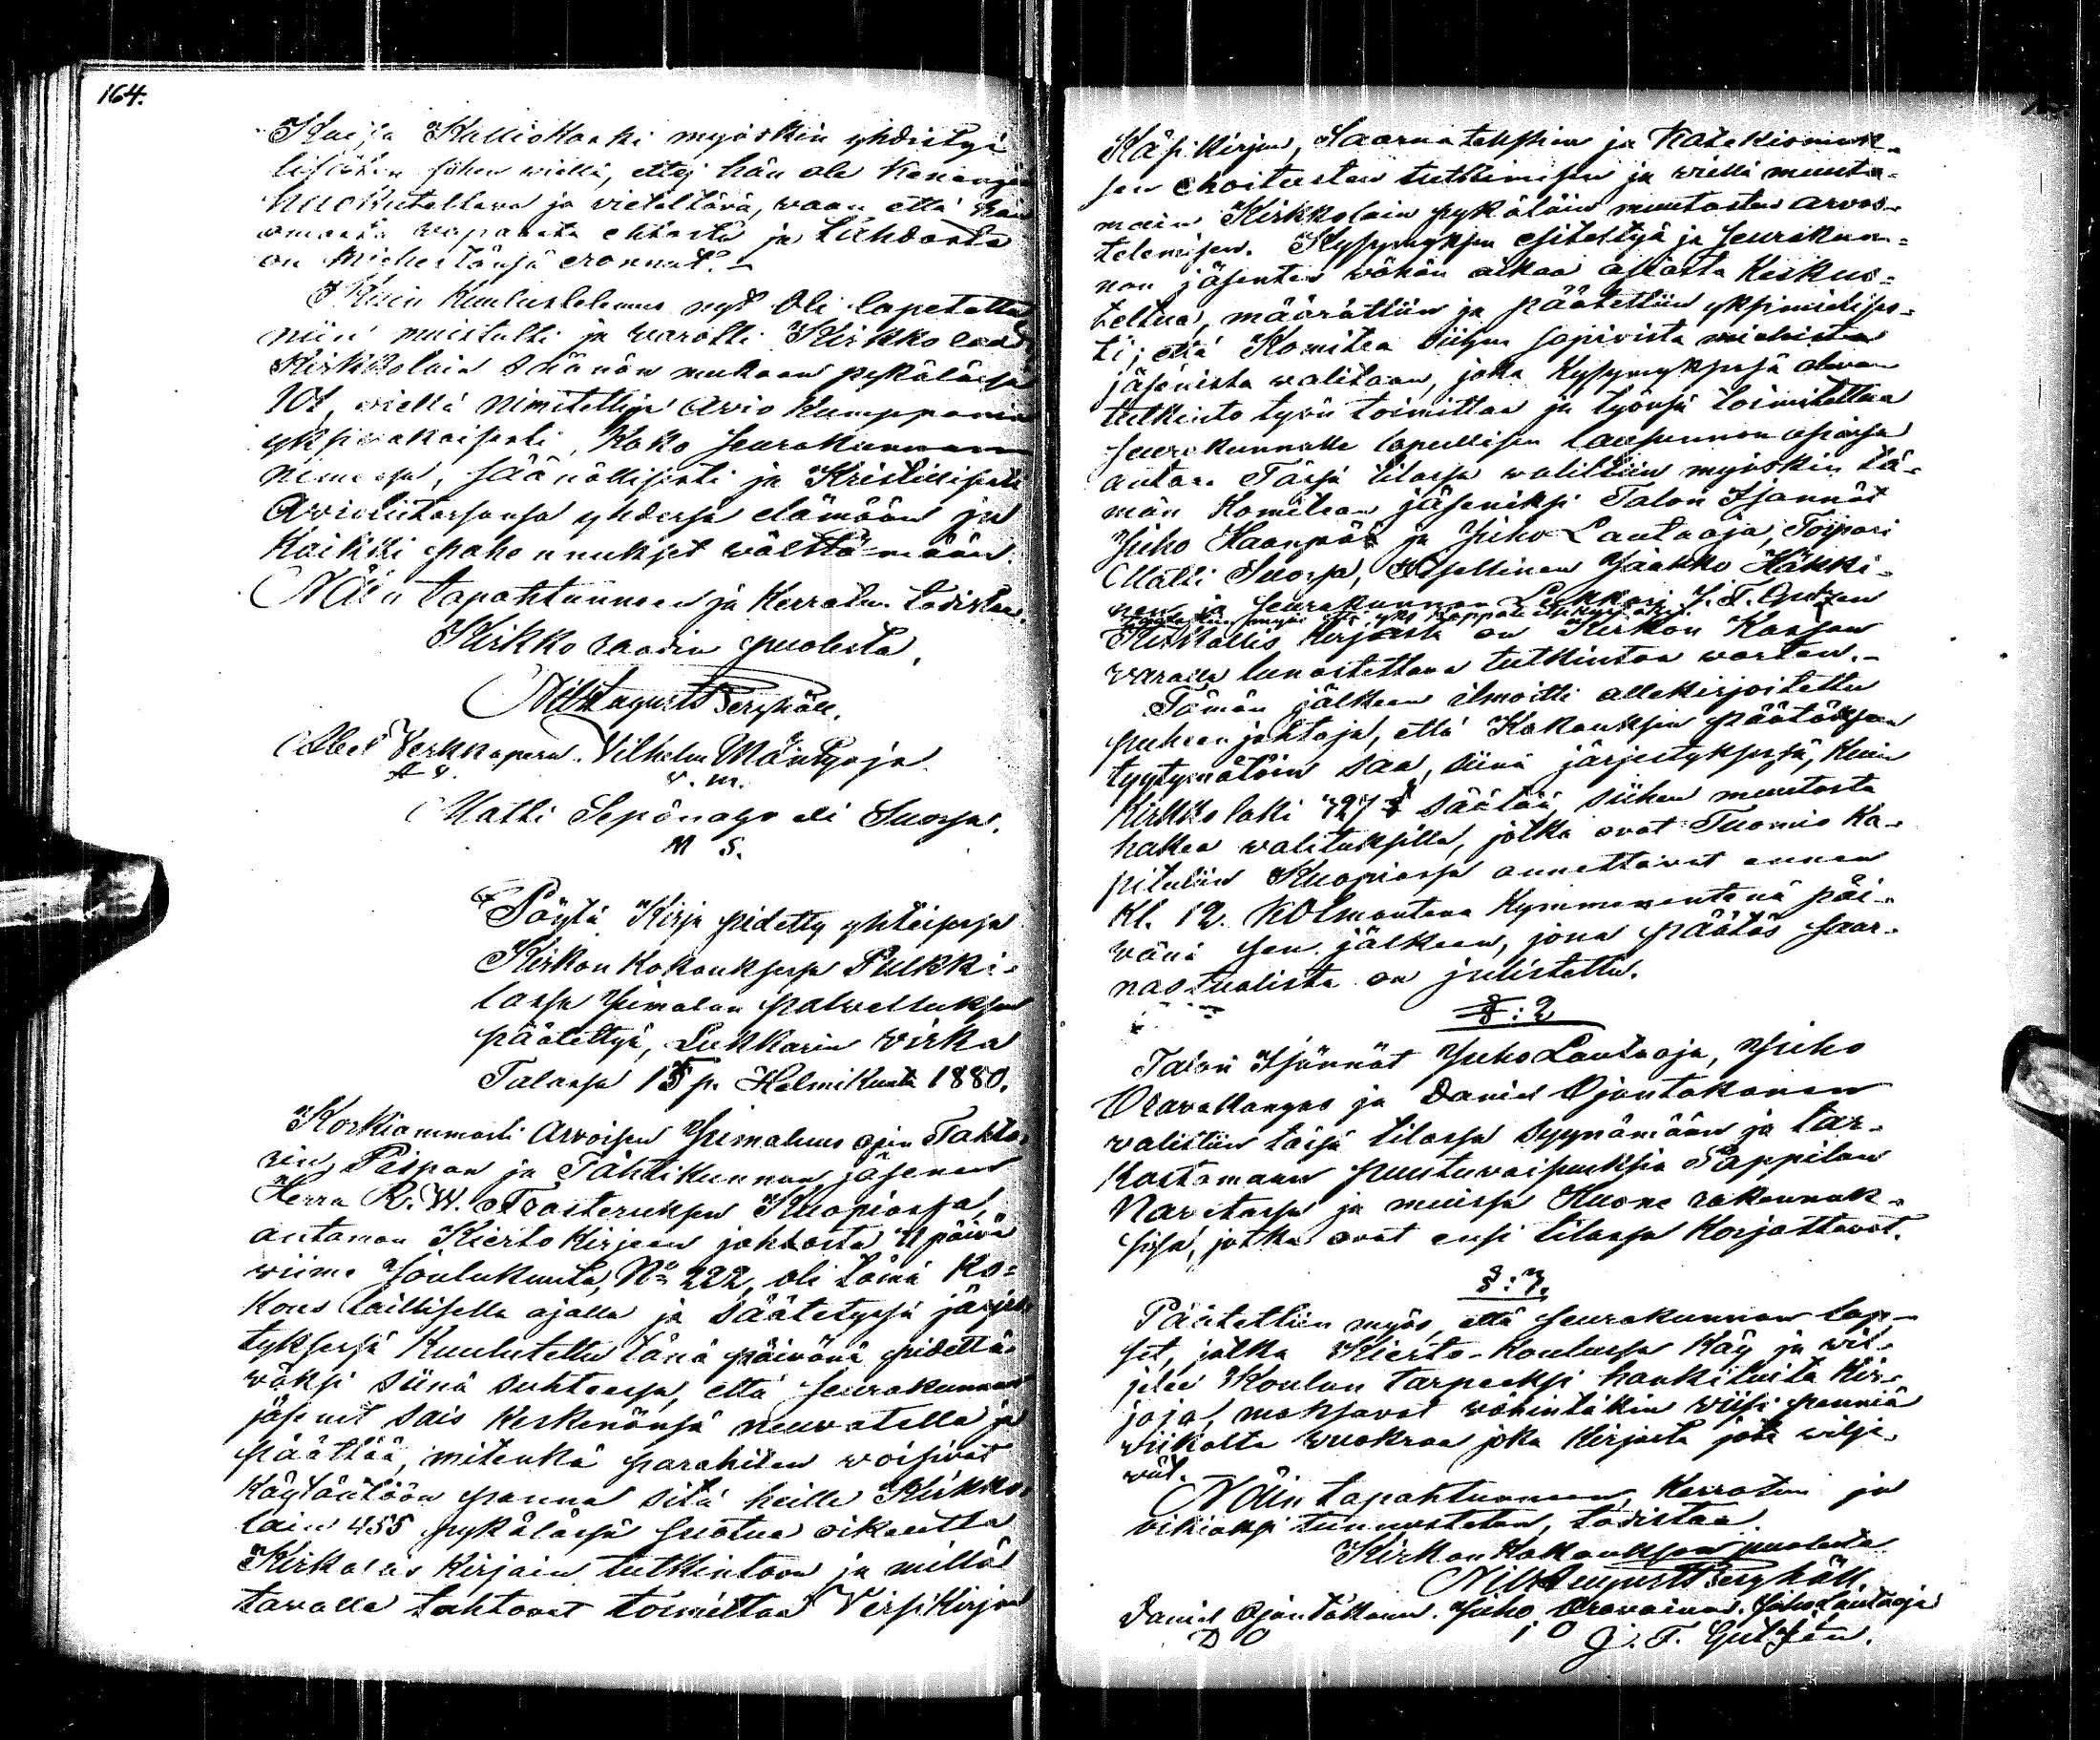 164.
Kaisa Kalliokoski myöskin yhdistyi
lisäten siihen wielä, ettei hän ole kenenjän
huokuteltava ja vieteltävä, waan että hän
omasta wapaasta ehdosta ja tahdosta
on miehestänsä eronnut. –
Kuin Kuulustelemus nyt oli lopetettu
niin muistutti ja varotti Kirkko raadi,
Kirkkolain säänön mukaan pykälässä
101, wielä nimitettyjä Avio Kumppania
yksivakaisesti, Koko seurakunnan
nimessä, säänöllisesti ja Kristillisesti
Avioliitossansa yhdessä elämään ja
kaikki pahennukset wälttämään.
Näin tapahtunneen ja Kerratun todistaa,
Kirkko raadin puolesta,
Nils August Berghäll.
Abel Verkkoperä. Vilhelm Mäntyoja
A V. V. M.
Matti Sepänalgo eli Suorsa.
M S.
Pöytä Kirja pidetty yhteisessä
Kirkon Kokouksessa Pulkki-
lassa Jumalan palvelluksen
päätettyä, Lukkarin Wirka
Talossa 15 p. Helmikuuta 1880.
Korkiammasti Arvoisen Jumaluus opin Tohto-
rin, Piispan ja Tähtikunnan jäsenen
Herra R. W. Frosteruksen Kuopiossa,
antaman Kierto kirjeen johdosta 11 päivä
wiime Joulukuuta, No 222, oli tämä Ko-
kous laillisella ajalla ja säätetyssä järjes
tyksessä Kuulutettu tänä päivänä pidettä-
wäksi siinä suhteessa, että seurakunnan
jäsenet sais keskenänsä neuvotella ja
päättää, mitenkä parahiten woisivat
käytäntöön panna sitä heille Kirkko-
lain 455 pykälässä suotua oikeutta
Kirkolis kirjain tutkintoon ja millä
tavalla tahtovat toimittaa Virsikirjan
Käsi kirjan, Saarna tekstien ja Katekismuk-
sen ehoitusten tutkimisen ja wielä muuta-
main Kirkkolain pykäläin muutosten arvos-
telemisen. Kysymyksen esitettyä ja seurakun-
nan jäsenten wähän aikaa asiasta keskus-
teltua, määrättiin ja päätettiin yksimielises-
ti; että Komitea siihen sopivista miehistä
jäsenistä valitaan, joka kysymyksessä olevan
tutkinto työn toimittaa ja työnsä toimitettua
seurakunnalle lopullisen lausunnon asiassa
antaa. Tässä tilassa walittiin myöskin tä-
män Komitean jäseniksi Talon Isännät
Juho Haanpää ja Juho Lautaoja, Torpari
Matti Suorsa, Itsellinen Jaakko Häkki-
nen ja seurakunnan Lukkari J. F. Gutzen
Kirkollis kirjasta on Kirkon Kassan
varalla lunastettava tutkintoa warten. –
Tämän jälkeen ilmoitti allekirjoitettu
puheen johtaja, että Kokouksen päätöksen
tyytymätöin saa, siinä järjestyksessä, kuin
Kirkko laki 427 § säätää, siihen muutosta
hakea walituksilla, jotka ovat Tuomio Ka-
pituliin Kuopiossa annettavat ennen
Kl. 12. Kolmantena Kymmenentenä päi-
vänä sen jälkeen, jona päätös saar-
nastuolista on julistettu.
§: 2
Talon Isännät Juho Lautaoja, Juho
Oravakangas ja Daniel Ojantakanen
walittiin tässä tilassa syynämään ja tar-
kastamaan puutuvaisuuksia Pappilan
Navetassa ja muissa Huone rakennuk-
sissa, jotka ovat ensi tilassa korjattavat.
§: 3.
Päätettiin myös, että seurakunnan lap-
set, jotka Kierto-koulussa käy ja wil-
jelee Koulun tarpeeksi hankituita kir-
joja, maksavat wähintäkin wiisi penniä
wiikolta wuokraa joka kirjasta jota wilje-
wät.
Näin tapahtunneen, Kerratun ja
oikiaksi tunnustetun, todistaa.
Kirkon Kokouksen puolesta
Nils August Berghäll
Daniel Ojantakanen. Juho Oravainen. Juho Lautaoja
D O J O J. F. Gutzén.